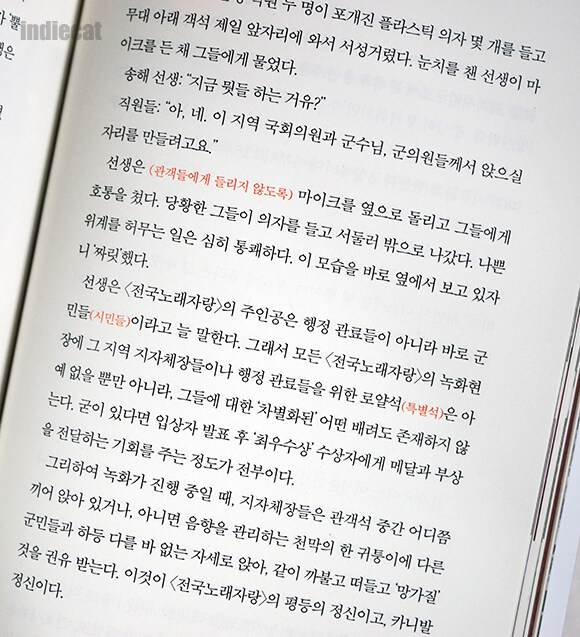 indiecat
두 명이 포개진 플라스틱 의자 몇 개를 들고
무대 아래 객석 제일 앞자리에 와서 서성거렸다. 눈치를 챈 선생이 마
이크를 든 채 그들에게 물었다.
송해 선생: “지금 뭣들 하는 거유?”
직원들: “아, 네. 이 지역 국회의원과 군수님, 군의원들께서 앉으실
자리를 만들려고요.”
선생은 (관객들에게 들리지 않도록) 마이크를 옆으로 돌리고 그들에게
호통을 쳤다. 당황한 그들이 의자를 들고 서둘러 밖으로 나갔다. 나쁜
위계를 허무는 일은 심히 통쾌하다. 이 모습을 바로 옆에서 보고 있자
니 ‘짜릿’했다.
선생은 〈전국노래자랑〉의 주인공은 행정 관료들이 아니라 바로 군
민들(시민들)이라고 늘 말한다. 그래서 모든 〈전국노래자랑〉의 녹화현
장에 그 지역 지자체장들이나 행정 관료들을 위한 로얄석(특별석)은 아
예 없을 뿐만 아니라, 그들에 대한 ‘차별화된’ 어떤 배려도 존재하지 않
는다. 굳이 있다면 입상자 발표 후 ‘최우수상’ 수상자에게 메달과 부상
을 전달하는 기회를 주는 정도가 전부이다.
그리하여 녹화가 진행 중일 때, 지자체장들은 관객석 중간 어디쯤
끼어 앉아 있거나, 아니면 음향을 관리하는 천막의 한 귀퉁이에 다른
군민들과 하등 다를 바 없는 자세로 앉아, 같이 까불고 떠들고 ‘망가질’
것을 권유 받는다. 이것이 〈전국노래자랑〉의 평등의 정신이고, 카니발
정신이다.